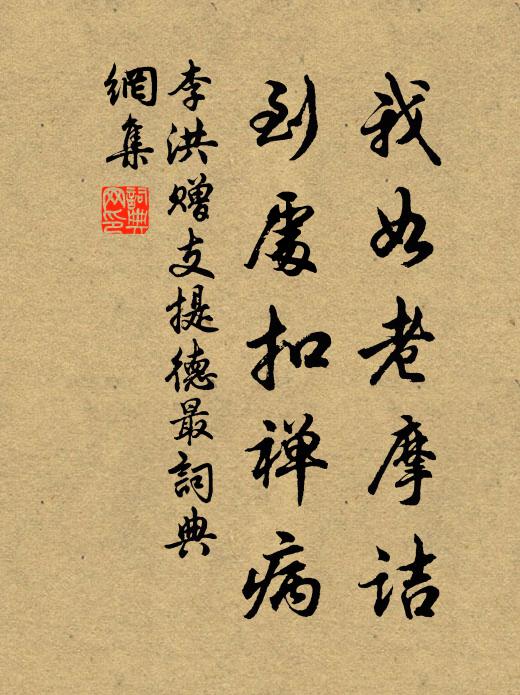 我如老摩詰
到處扣禅病
李洪贈支提德最詞典
網集
詞典
网印